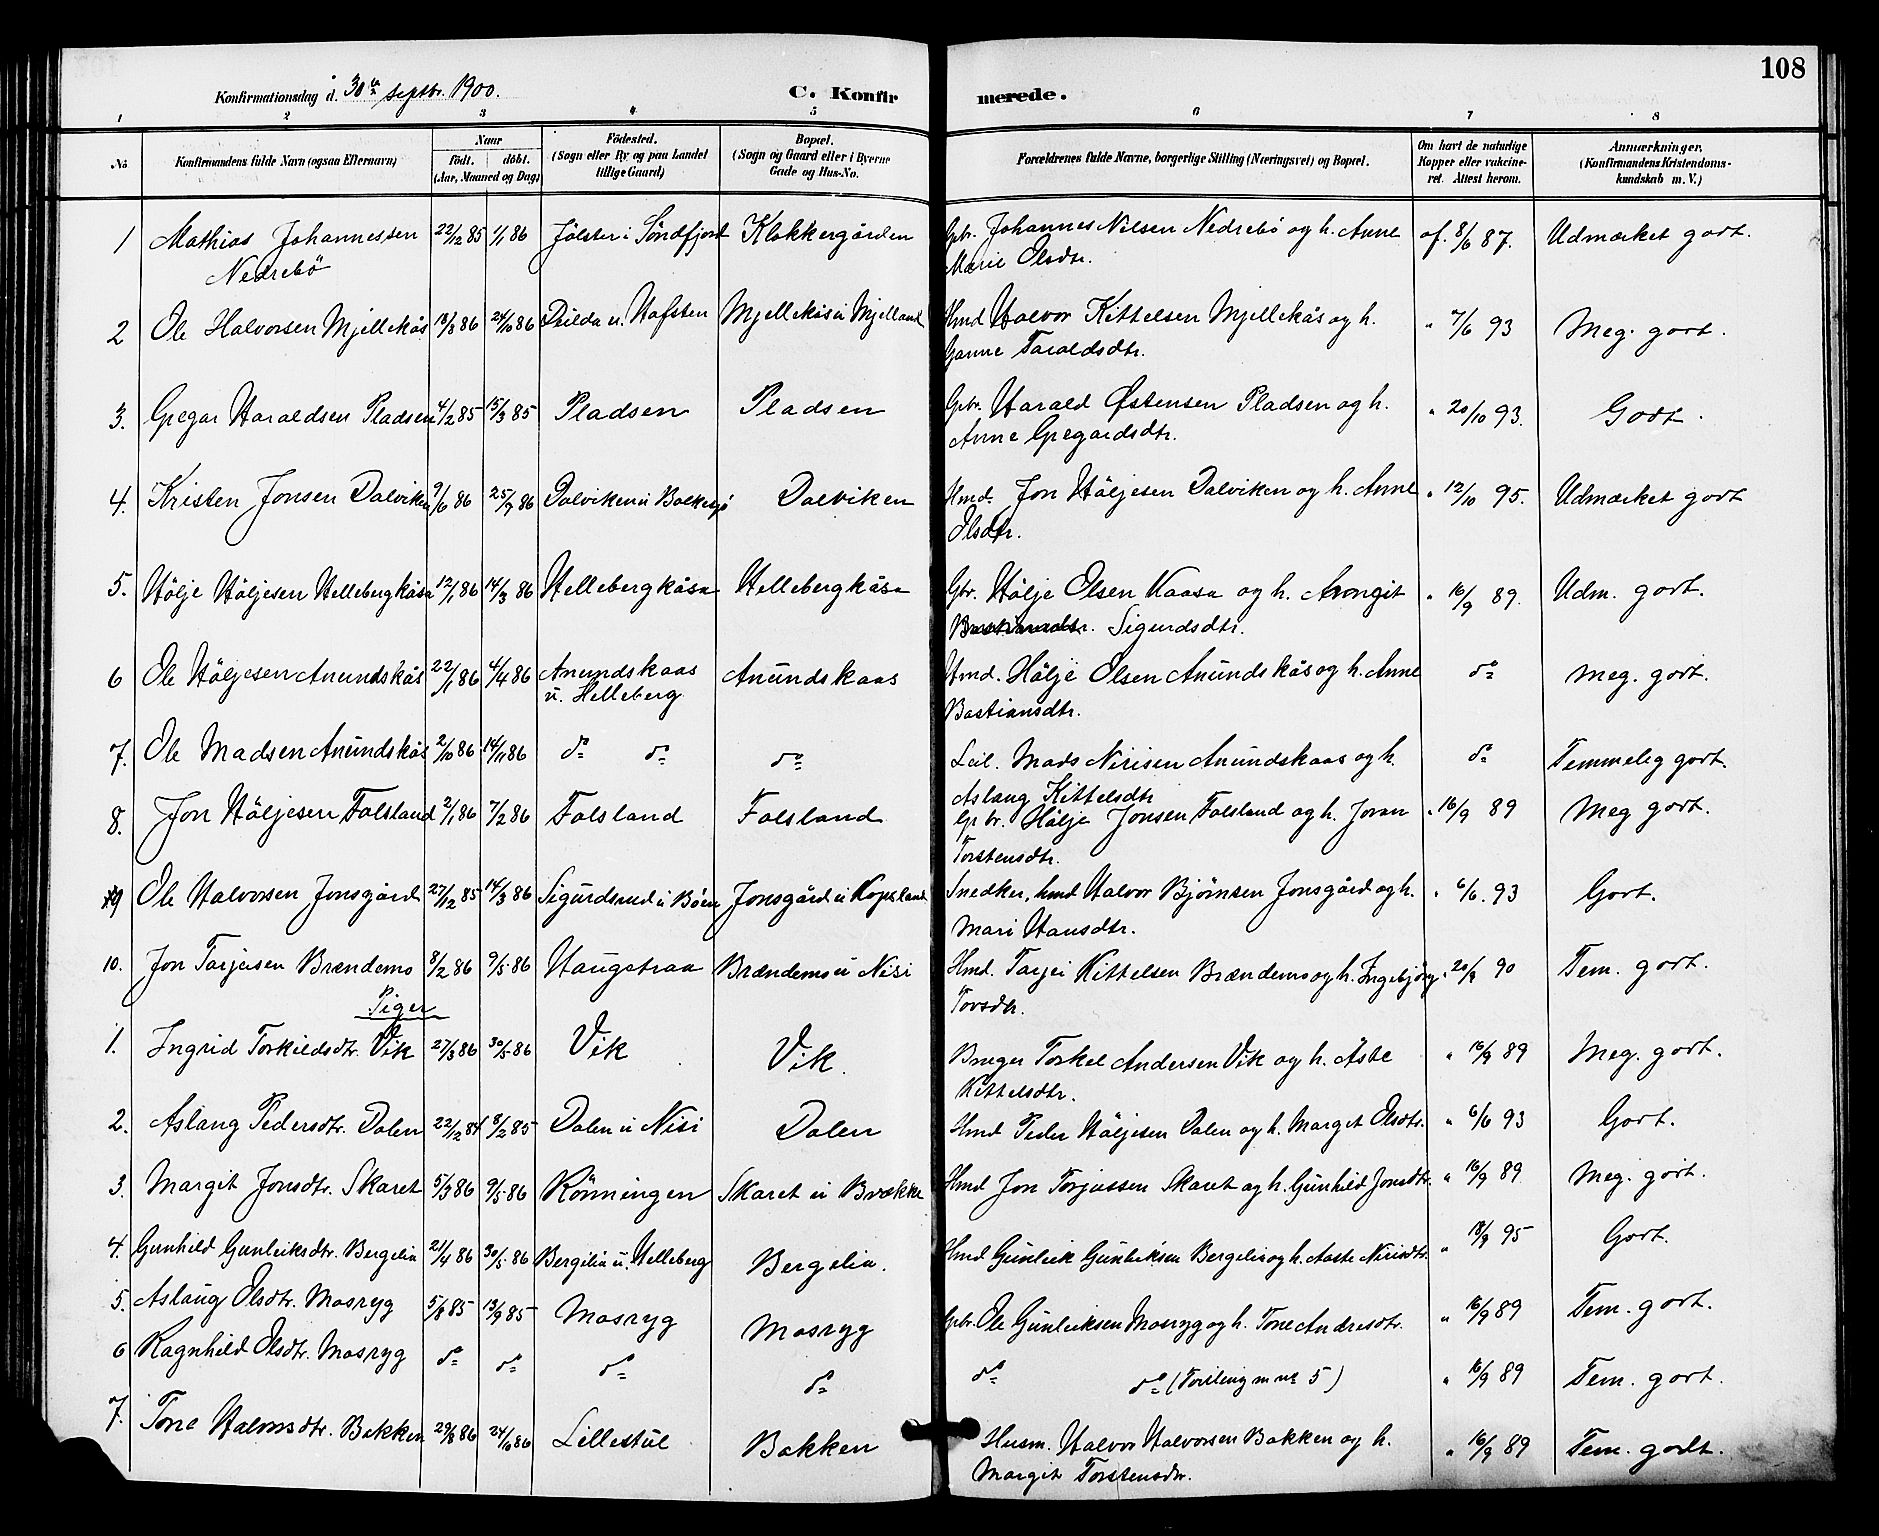 108
Konfirmationsdag d. 30te septbr. 1900.
C. Konfirmerede.
1 2 3 4 5 6 7 8
No Konfirmandens fulde Navn (ogsaa Efternavn) Naar født. døbt. (Aar, Maaned og Dag) Fødested. (Sogn eller By og paa Landet tillige Gaard) Bopæl. (Sogn og Gaard eller i Byerne Gade og Hus-No. Forældrenes fulde Navne, borgerlige Stilling (Næringsvei) og Bopæl. Om havt de naturlige Kopper eller vakcineret. Attest herom. Anmærkninger. (Konfirmandens Kristendomskundskab m. V.)
1 Mathias Johannessen 22/12 85 1/1 86 Jölster i Söndfjord Klokkergården Gbr. Johannes Nilsen Nedrebö og h. Anne af. 8/6 87. Udmærket godt.
Nedrebö Marie Olsdtr.
2 Ole Halvorsen Mjellekås 18/8 86 24/10 86 u. Hafsten Mjellekås u Mjelland Hmd Halvor Kittelsen Mjellekås og h. " 7/6 93 Meg. godt.
Taraldsdtr.
3. Gregar Haraldsen Pladsen 4/2 85 15/3 85 Pladsen Pladsen Gbr. Harald Østensen Pladsen og h. " 20/10 93. Godt.
Anne Gregardsdtr.
4. Kristen Jonsen Dalviken 9/6 86 25/7 86 Dalviken u Bolkesjö Dalviken Hmd. Jon Höljesen Dalviken og h. Anne " 12/10 95. Udmærket godt
Olsdtr.
5. Hölje Höljesen Hellebergkåsa 12/1 86 14/3 86 Hellebergkåsa Hellebergkåsa Gbr. Hölje Olsen Kaasa og h. Arongit " 16/9 89. Udm. godt.
Sigurdsdtr.
6 Ole Höljesen Anundskås 22/1 86 4/4 86 Anundskaas Anundskaas Hmd. Hölje Olsen Anundskås og h. Anne do Meg. godt.
u. Helleberg Bastiansdtr.
7. Ole Madsen Anundskås 2/10 86 14/11 86 do do do Leil. Mads Nirisen Anundskaas og h. do Temmelig godt.
Aslaug Kittelsdtr
8. Jon Höljesen Folsland 2/1 86 7/2 86 Folsland Folsland Gbr. Hölje Jonsen Folsland og h. Joran " 16/9 89 Meg godt.
Torstensdtr.
9 Ole Halvorsen Jonsgård 27/12 85 14/3 86 Sigurdsrud u Böen Jonsgård u Kopsland Snedker, hmd Halvor Bjørnsen Jonsgård og h. " 6/6. 93 Godt.
Mari Hansdtr.
10. Jon Tarjeisen Brændemo 8/2 86 9/5 86 Haugstraa Brændemo u Nisi Hmd. Tarjei Kittelsen Brændemo og h. Ingebjörg " 20/9 90 Tem. godt.
Torsdtr.
Piger
1. Ingrid Torkildsdtr. Vik 27/3 86 30/5 86 Vik Vik. Bruger Torkel Andersen Vik og h. Åste " 16/9 89 Meg. godt.
Kittelsdtr.
2. Aslaug Pedersdtr. Dalen 22/12 84 8/2 85 Dalen u Nisi Dalen Hmd Peder Höljesen Dalen og h. Margit Olsdtr. " 6/6 93 Godt.
3. Margit Jonsdtr. Skaret 5/3 86 9/5 86 Rönningen Skaret u Brække Hmd Jon Torjussen Skaret og h. Gunhild Jonsdtr. " 16/9 89 Meg. godt.
4. Gunhild Gunleiksdtr. Bergelia 21/4 86 30/5 86 Bergelia u. Helleberg Bergelia. Hmd Gunleik Gunleiksen Bergelia og h. Aaste Nirisdtr. " 18/9 95 Godt.
5. Aslaug Olsdtr. Mosryg 5/8 85 13/9 85 Mosryg Mosryg Gbr. Ole Gunleiksen Mosryg og h. Tone Andresdtr. " 16/9 89 Tem. godt.
6 Ragnhild Olsdtr. Mosryg do do do do do do (Tvilling m no 5) " 16/9 89 Tem. godt.
7. Tone Halvorsdtr. Bakken 29/8 86 24/10 86 Lillestul Bakken Husm. Halvor Halvorsen Bakken og h. " 16/9 89 Tem. godt.
Margit Torstensdtr.